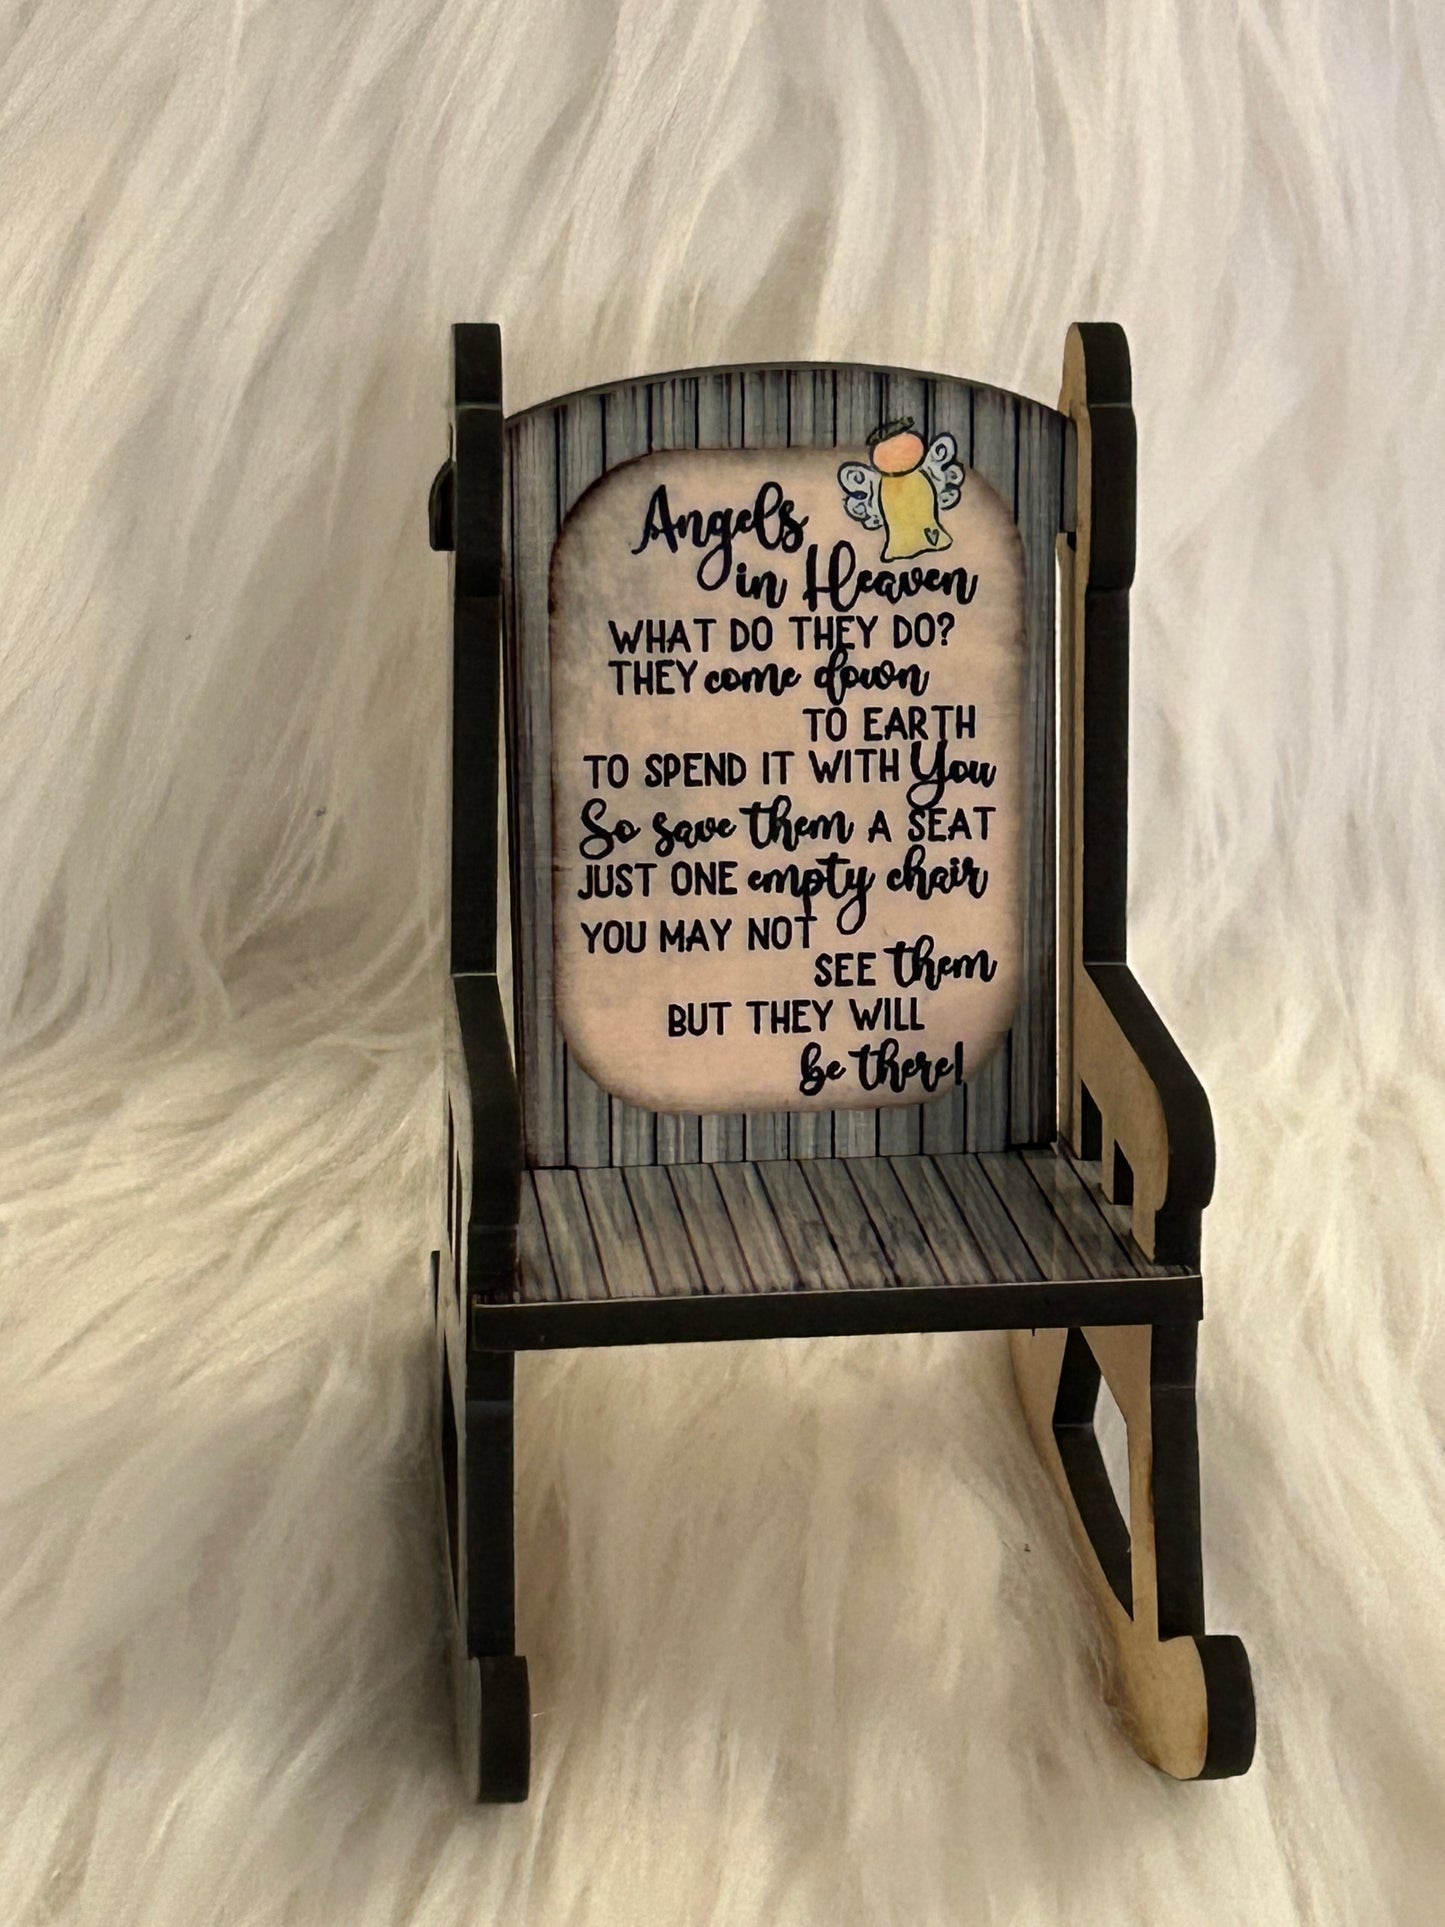 Angels
in Heaven
WHAT DO THEY DO?
THEY come down
TO EARTH
TO SPEND IT WITH You
So save them A SEAT
JUST ONE empty chair
YOU MAY NOT
SEE them
BUT THEY WILL
be there!